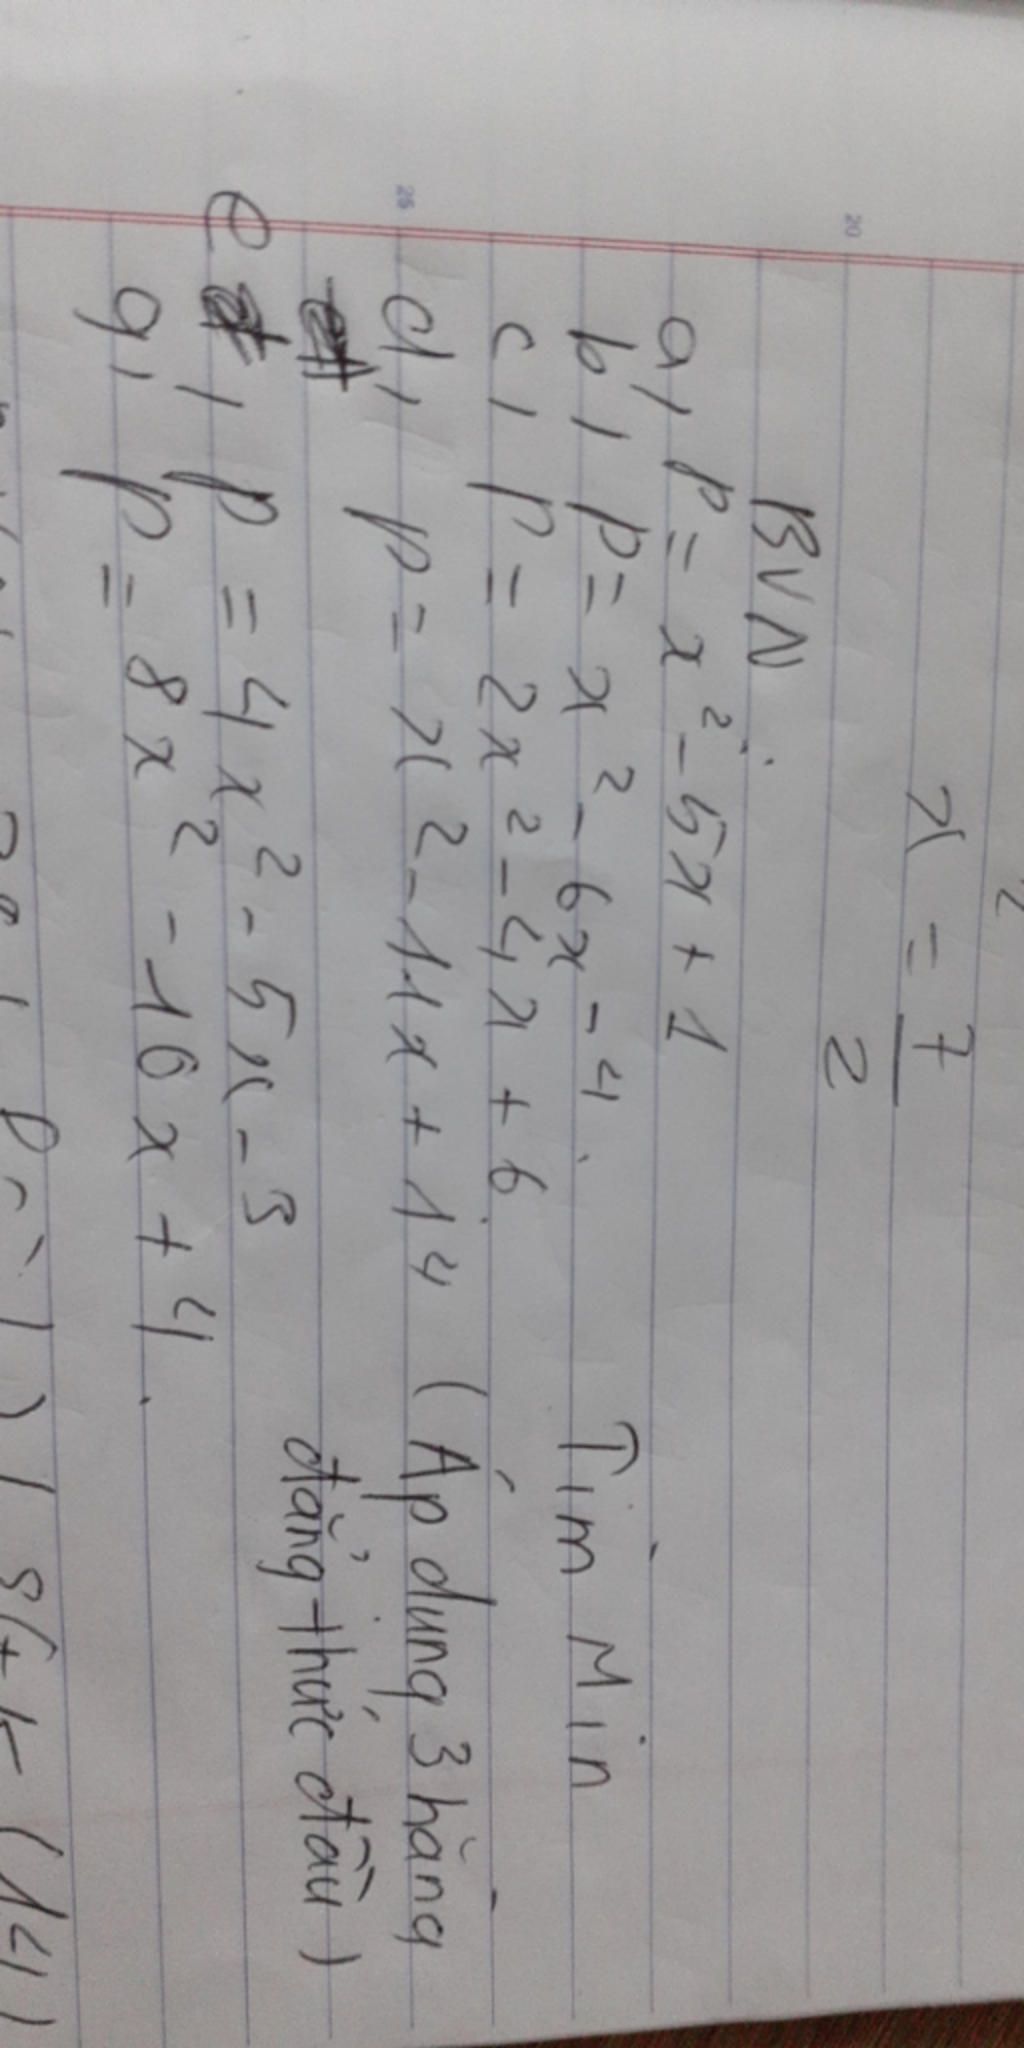 x = 7/2
BVN
a, P = x² - 5x + 1
b, P = x² - 6x - 4. Tìm Min
c, P = 2x² - 4x + 6
d, P = x² - 11x + 14 (Áp dụng 3 hằng
đẳng thức đầu)
e, P = 4x² - 5x - 3
g, P = 8x² - 16x + 4.